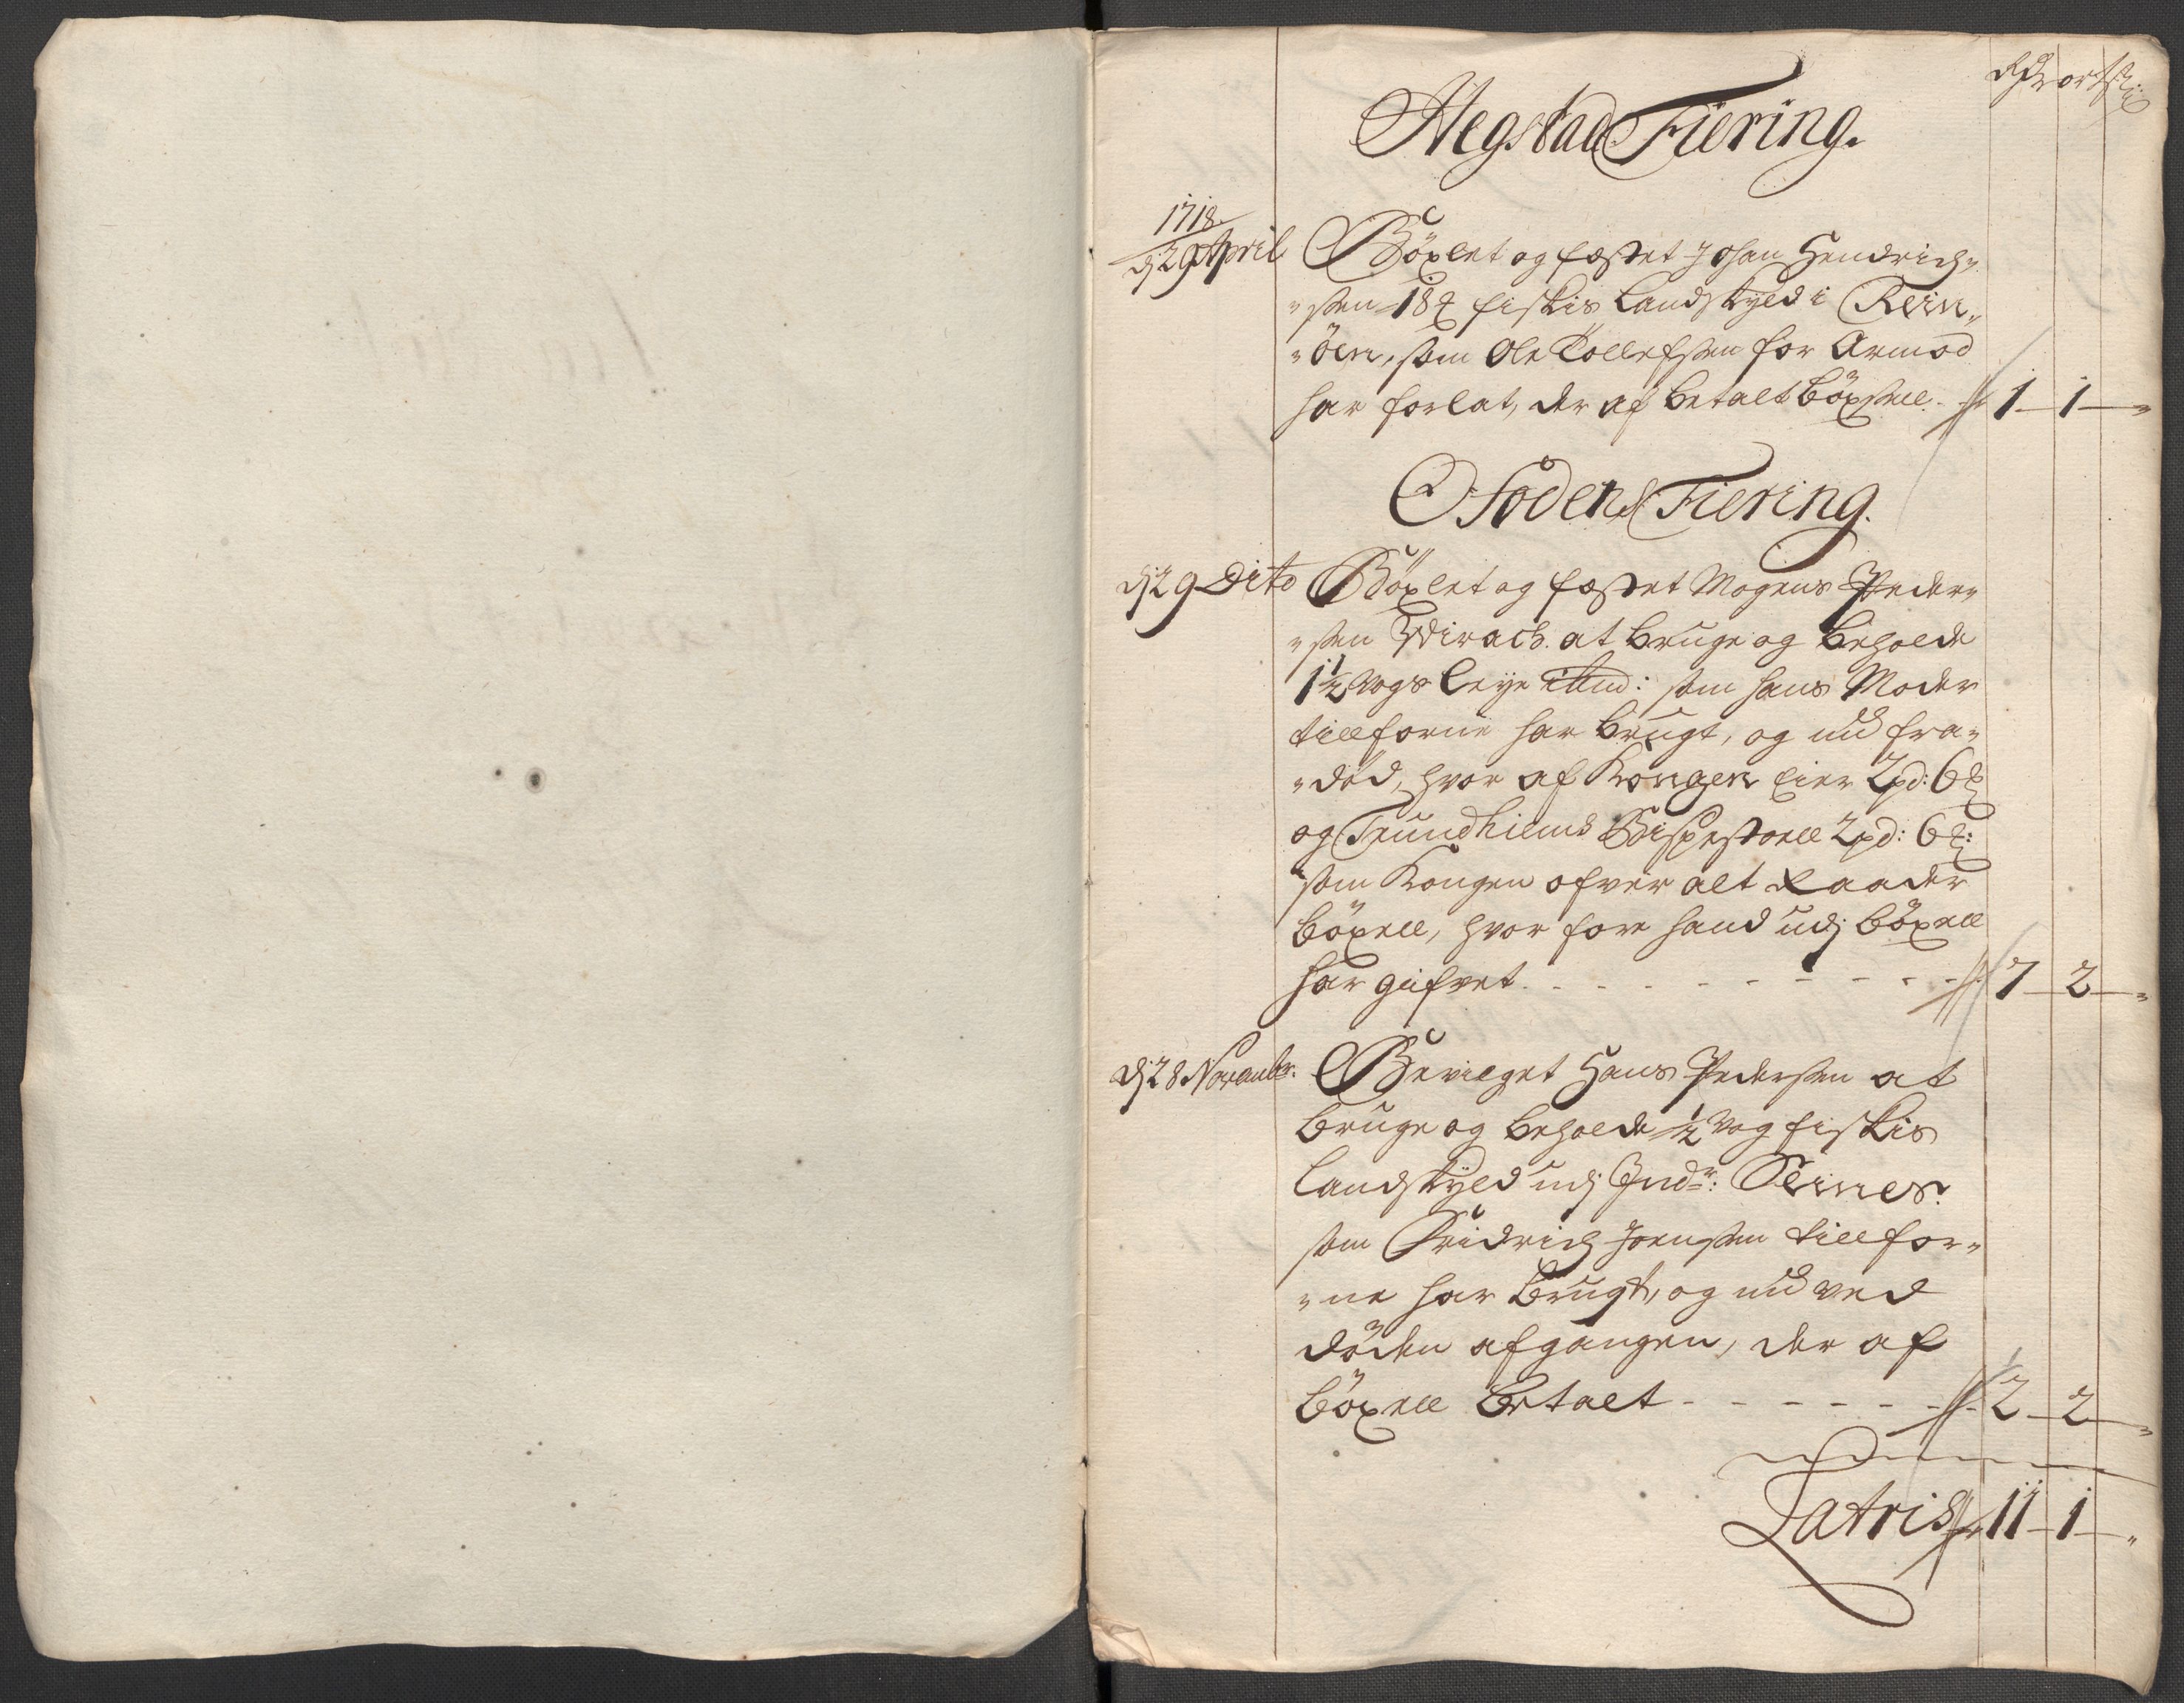 Rdr ort s
Hegstad Fiering.
1718
dj 29 April Böxlet og fæstet Johan Hendrich
"sen 18 ℔ fiskis Landskyld i Rein„
"öen, som Ole Tollefsen for Armod
har forlat, der af betalt böxsell. 1 1 "
Ofodens Fiering.
dj 29 Dito Böxlet og fæstet Mogens Peder„
"sen at bruge og beholde
1½ Wogs Leye som hans Moder
tillforne har brugt, og nu fra„
"død, hvor af Kongen Eier 2 pd: 6 ℔
og Trundhiems Bispestoell 2 pd: 6 ℔:
som Kongen ofver alt Raader
böxell, hvor fore hand udj böxell
har gifvet. 7 2 "
dj 28 Novembr. Bevilget Hans Pedersen at
bruge og beholde ½ Vog fiskis
Landskyld udj Indr: Seines.
som Fridrich Joensen tillfor„
"ne har brugt, og nu ved
döden afgangen, der af
böxell betalt 2 2 "
Latris 11 1 "